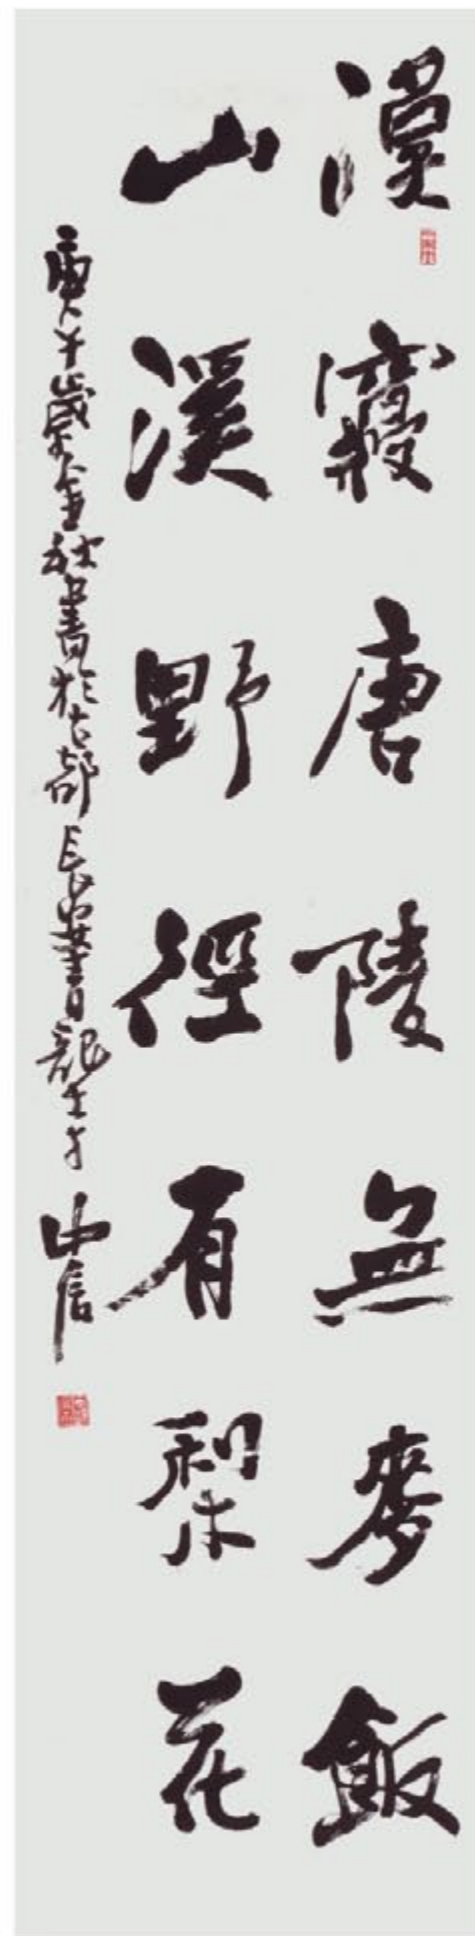 漢寢唐陵無麥飯
山溪野徑有梨花
庚午歲金秋書於古都長安青龍寺